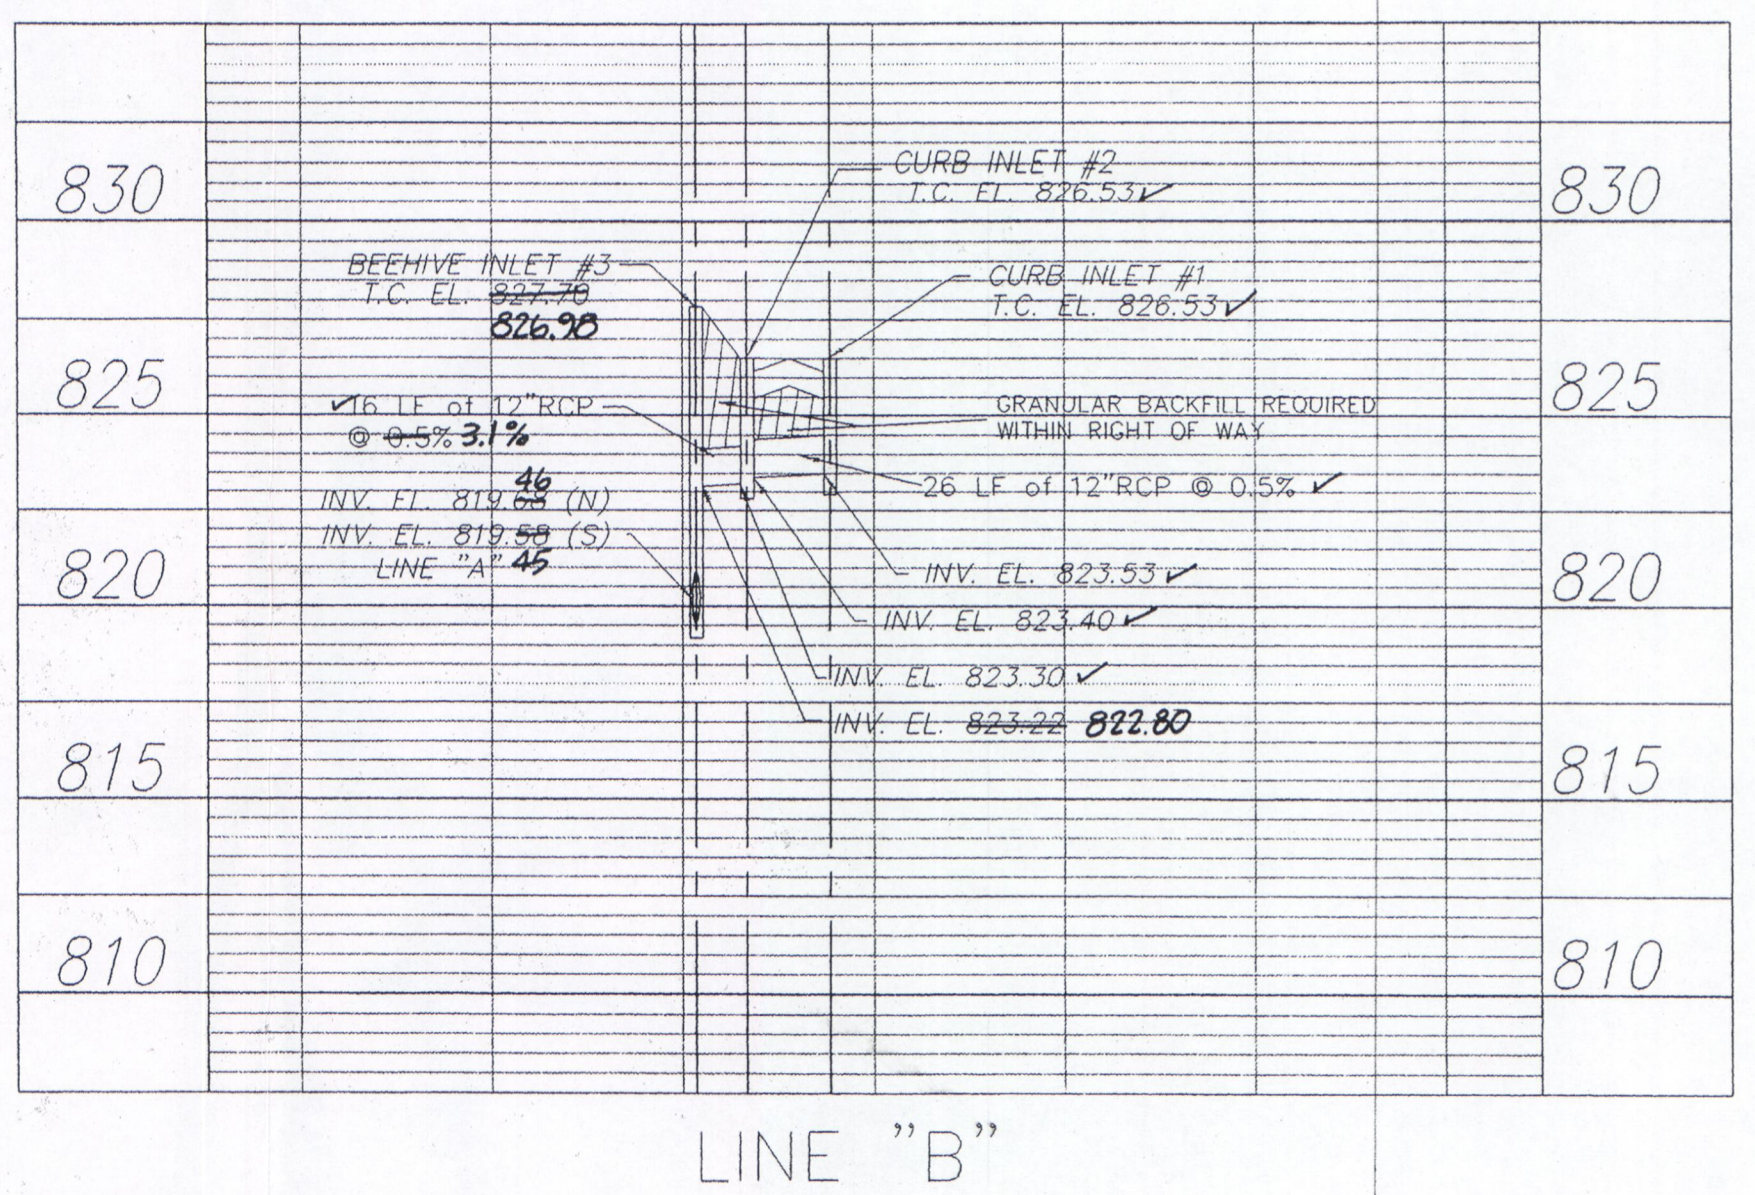 830
830
CURB INLET #2
T.C. EL. 826.53✓
BEEHIVE INLET #3
T.C. EL. 827.70
826.98
CURB INLET #1
T.C. EL. 826.53✓
825
825
✓16 LF of 12"RCP
@ 0.5% 3.1%
GRANULAR BACKFILL REQUIRED
WITHIN RIGHT OF WAY
26 LF of 12"RCP @ 0.5% ✓
46
INV. EL. 819.68 (N)
INV. EL. 819.58 (S)
LINE "A" 45
820
820
INV. EL. 823.53 ✓
INV. EL. 823.40 ✓
INV. EL. 823.30 ✓
INV. EL. 823.22 822.80
815
815
810
810
LINE "B"